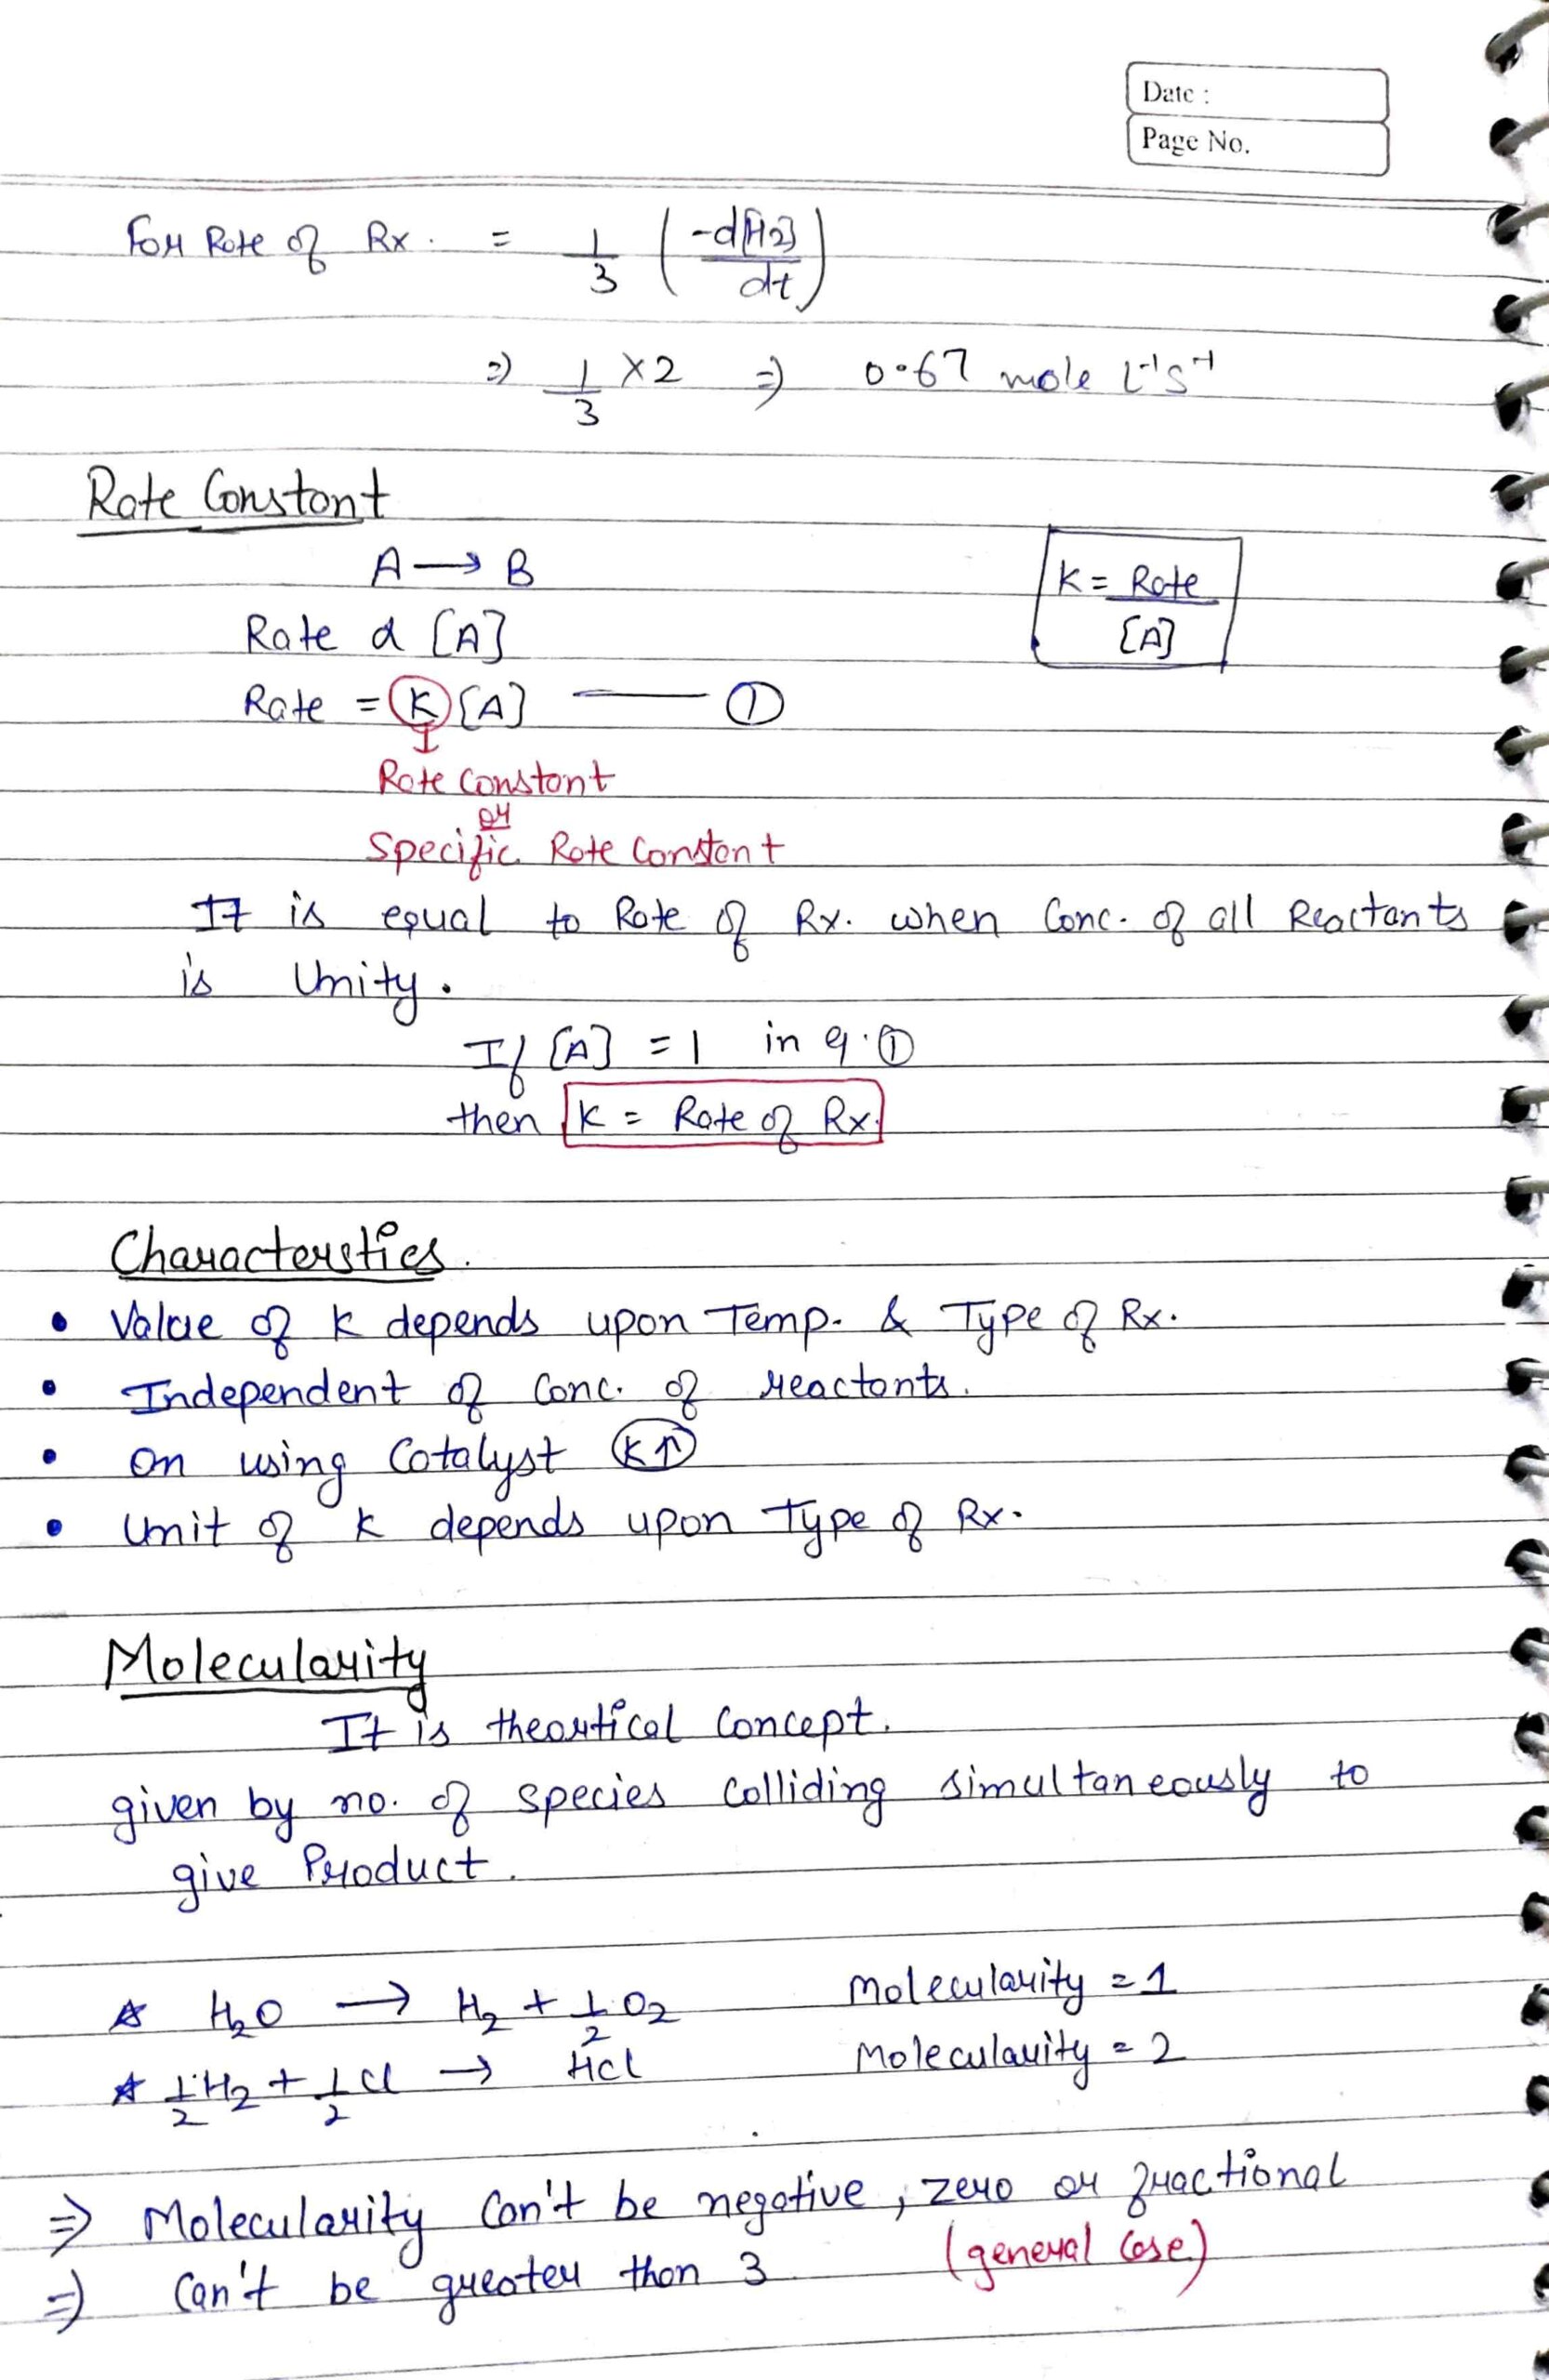 Date :
Page No.
For Rate of Rx. = 1/3 (-d[H2]/dt)
⇒ 1/3 × 2 ⇒ 0.67 mole L⁻¹s⁻¹
Rate Constant
A → B
K = Rate/[A]
Rate α [A]
Rate = K [A] —— ①
Rate Constant
or
Specific Rate Constant
It is equal to Rate of Rx. when Conc. of all Reactants
is Unity.
If [A] = 1 in q.①
then K = Rate of Rx.
Characterstics.
• Value of K depends upon Temp. & Type of Rx.
• Independent of Conc. of reactants.
• On using Catalyst K↑
• Unit of K depends upon Type of Rx.
Molecularity
It is theortical Concept.
given by no. of species Colliding simultaneously to
give Product.
☆ H₂O → H₂ + 1/2 O₂ Molecularity = 1
☆ 1/2 H₂ + 1/2 Cl → HCl Molecularity = 2
⇒ Molecularity Can't be negative, zero or fractional
⇒ Can't be greater than 3 (general Case)